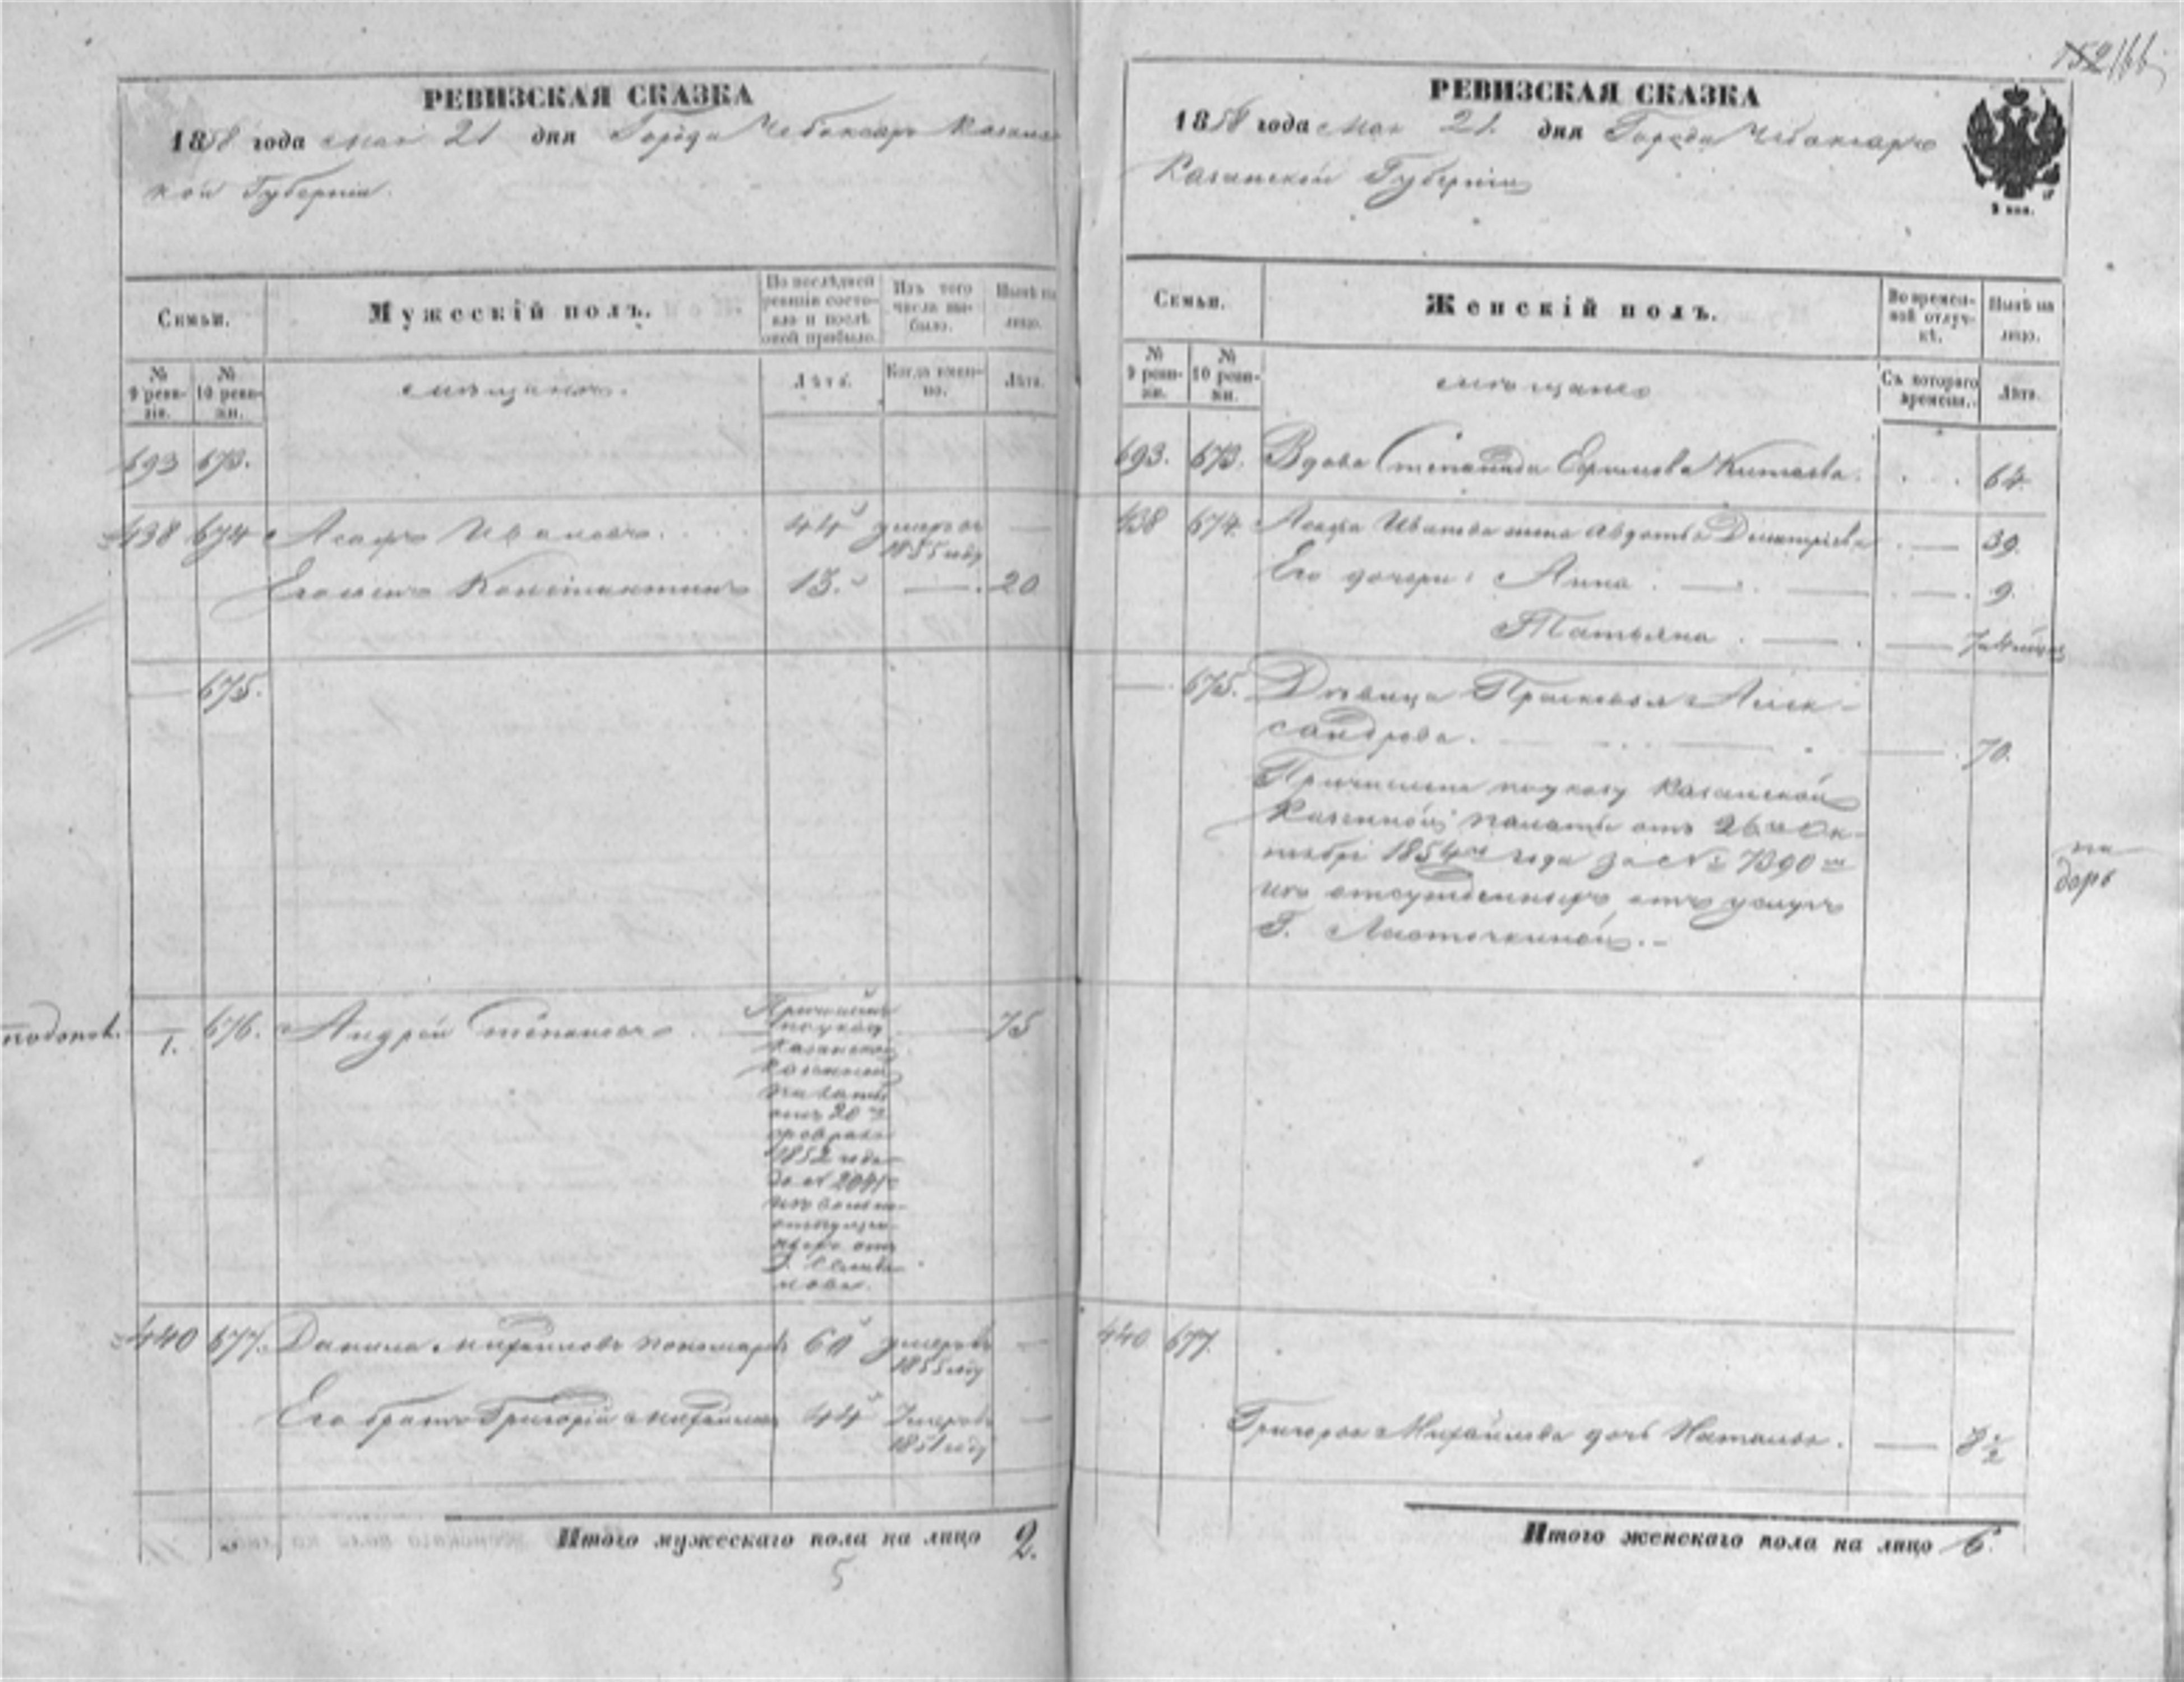 152 166
РЕВИЗСКАЯ СКАЗКА
1858 года мая 21 дня Города Чебоксаръ Казанс
кой Губерніи.
Семьи.
Мужескій полъ.
По послѣдней ревизіи состояло и послѣ оной прибыло.
Изъ того числа выбыло.
Нынѣ на лицо.
№ 9 ревизіи.
№ 10 ревизіи.
мѣщане.
Лѣта.
Когда именно.
Лѣта.
693 673.
438 674 Асафъ Ивановъ. 44 умеръ въ 1855 году —
Константинъ 13. — 20
— 675.
— 1. 676. Андрей Степановъ 75
Причисленъ
по указу
Казанской
Казенной
палаты
отъ 20
февраля
1852 года
за № 2041
отъ
440 677. Данила Михайловъ Пономаревъ 60 умеръ въ 1855 году —
Его братъ Григорій Михайловъ 44 Умеръ въ 1851 году —
Итого мужескаго пола на лицо 2.
5
РЕВИЗСКАЯ СКАЗКА
1858 года мая 21. дня Города Чебоксаръ
Казанской Губерніи
Семьи.
Женскій полъ.
Во временной отлучкѣ.
Нынѣ на лицо.
№ 9 ревизіи.
№ 10 ревизіи.
мѣщане
Съ котораго времени.
Лѣта.
693. 673. Вдова Степанида Ефимова Китаева. 64.
438 674. Асафа Иванова жена Авдотья Дмитріева — 39.
Его дочери: Анна — 9.
Татьяна — 7
— 675. Дѣвица Прасковья Алек-
сандрова. — 70.
Причислена по указу Казанской
Казенной палаты отъ 26го Ок-
тября 1854го года за № 7390
изъ отсужденныхъ отъ
Г. Ласточкиной.
440 677.
Григорья Михайлова дочь Наталья. — 8 1/2
Итого женскаго пола на лицо 6.